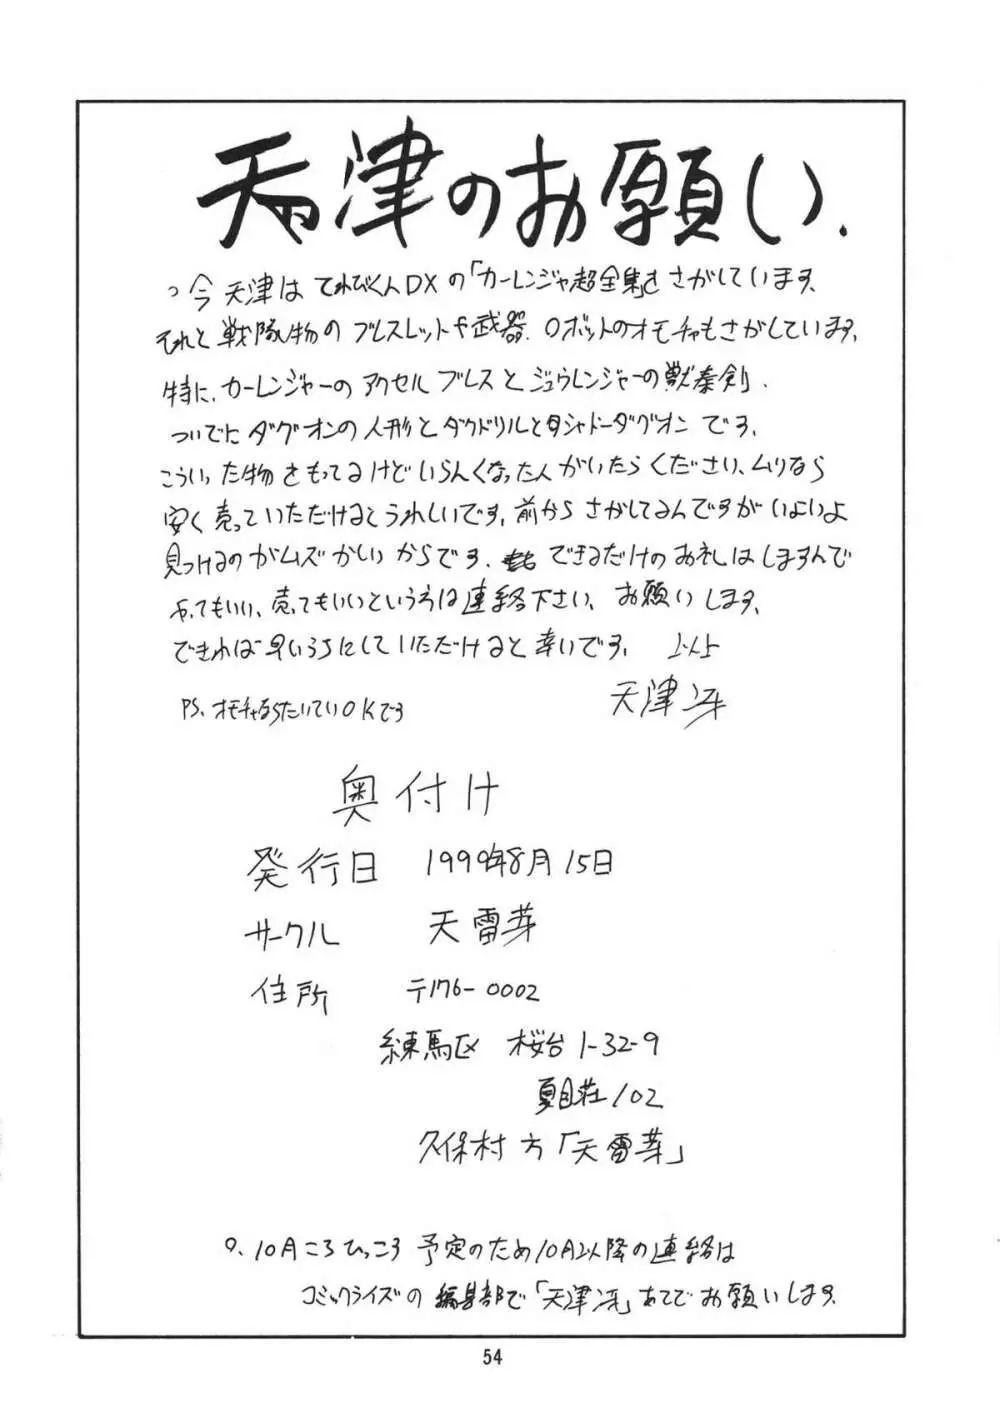 天津のお願い.
っ今天津はてれびくんDXの「カーレンジャ超全集」をさがしています、
それと戦隊物のブレスレットや武器、ロボットのオモチャもさがしています、
特に、カーレンジャーのアクセルブレスとジュウレンジャーの獣奏剣、
ついでにダグオンの人形とダグドリルとシャドーダグオンです、
こういった物をもってるけどいらんくなった人がいたらください、ムリなら
安く売っていただけるとうれしいです、前からさがしてるんですがいよいよ
見つけるのがムズかしいからです、できるだけのお礼はしますんで
やってもいい、売ってもいいという方は連絡下さい、お願いします、
できれば早いうちにしていただけると幸いです、 以上
PS、オモチャならたいていOKです
天津冴
奥付け
発行日 1999年8月15日
サークル 天雷芽
住所 〒176-0002
練馬区 桜台1-32-9
夏目荘102
久保村方「天雷芽」
9、10月ころひっこす予定のため10月以降の連絡は
コミックライズの編集部で「天津冴」あてでお願いします、
54